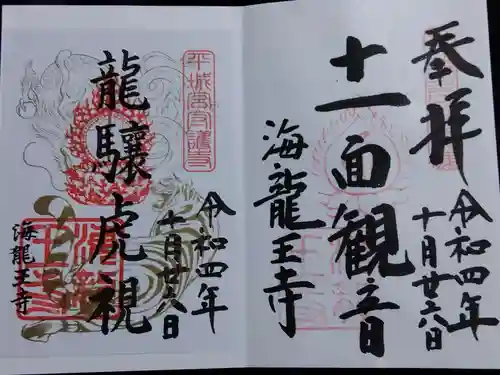 奉拝
令和四年
十月廿六日
十一面観音
海龍王寺
平城宮守護寺
令和四年
十月廿六日
龍驤虎視
海龍王寺